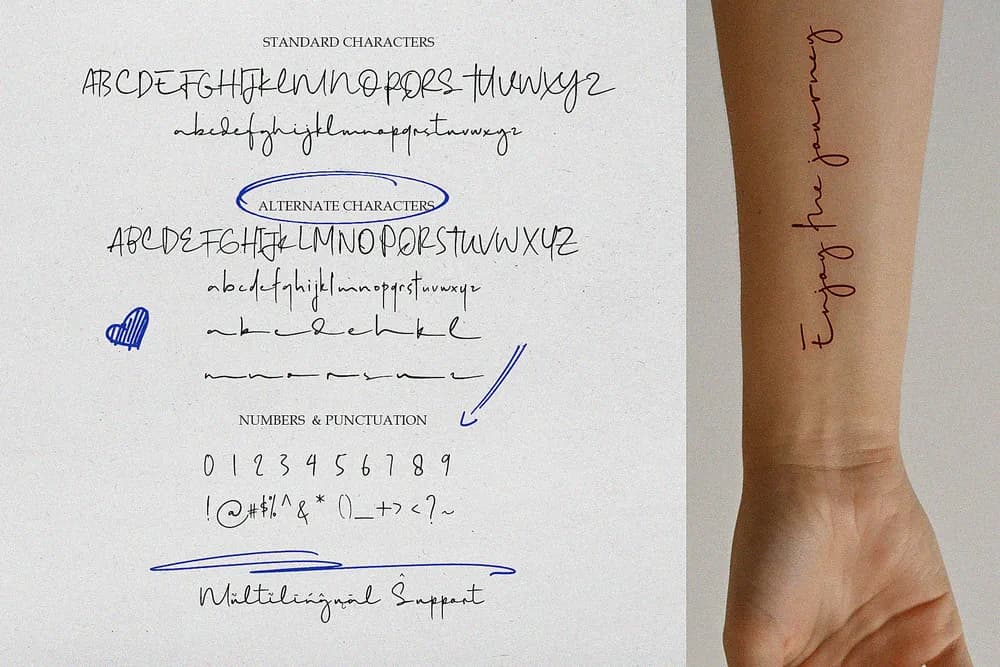 STANDARD CHARACTERS
ABCDEFGHIJKLMNOPQRSTUVWXYZ
abcdefghijklmnopqrstuvwxyz
ALTERNATE CHARACTERS
ABCDEFGHIJKLMNOPQRSTUVWXYZ
abcdefghijklmnopqrstuvwxyz
abcdehkl
mnorsuz
NUMBERS & PUNCTUATION
0 1 2 3 4 5 6 7 8 9
!@#$%^&* ()_+><?~
Mültïlíńĝųāl Ŝupport
Enjoy the journey